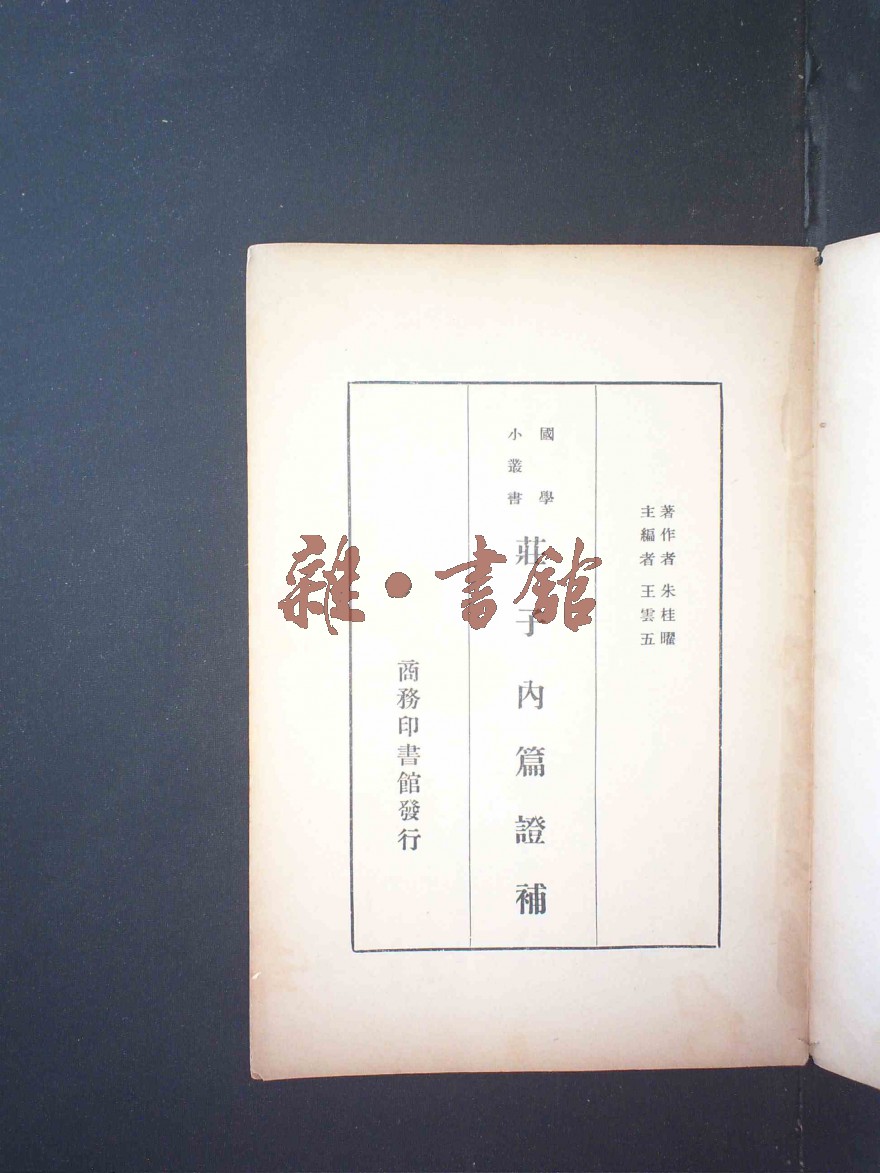 著作者 朱桂曜
主編者 王雲五
國學
小叢書
莊子內篇證補
商務印書館發行
雜·書館